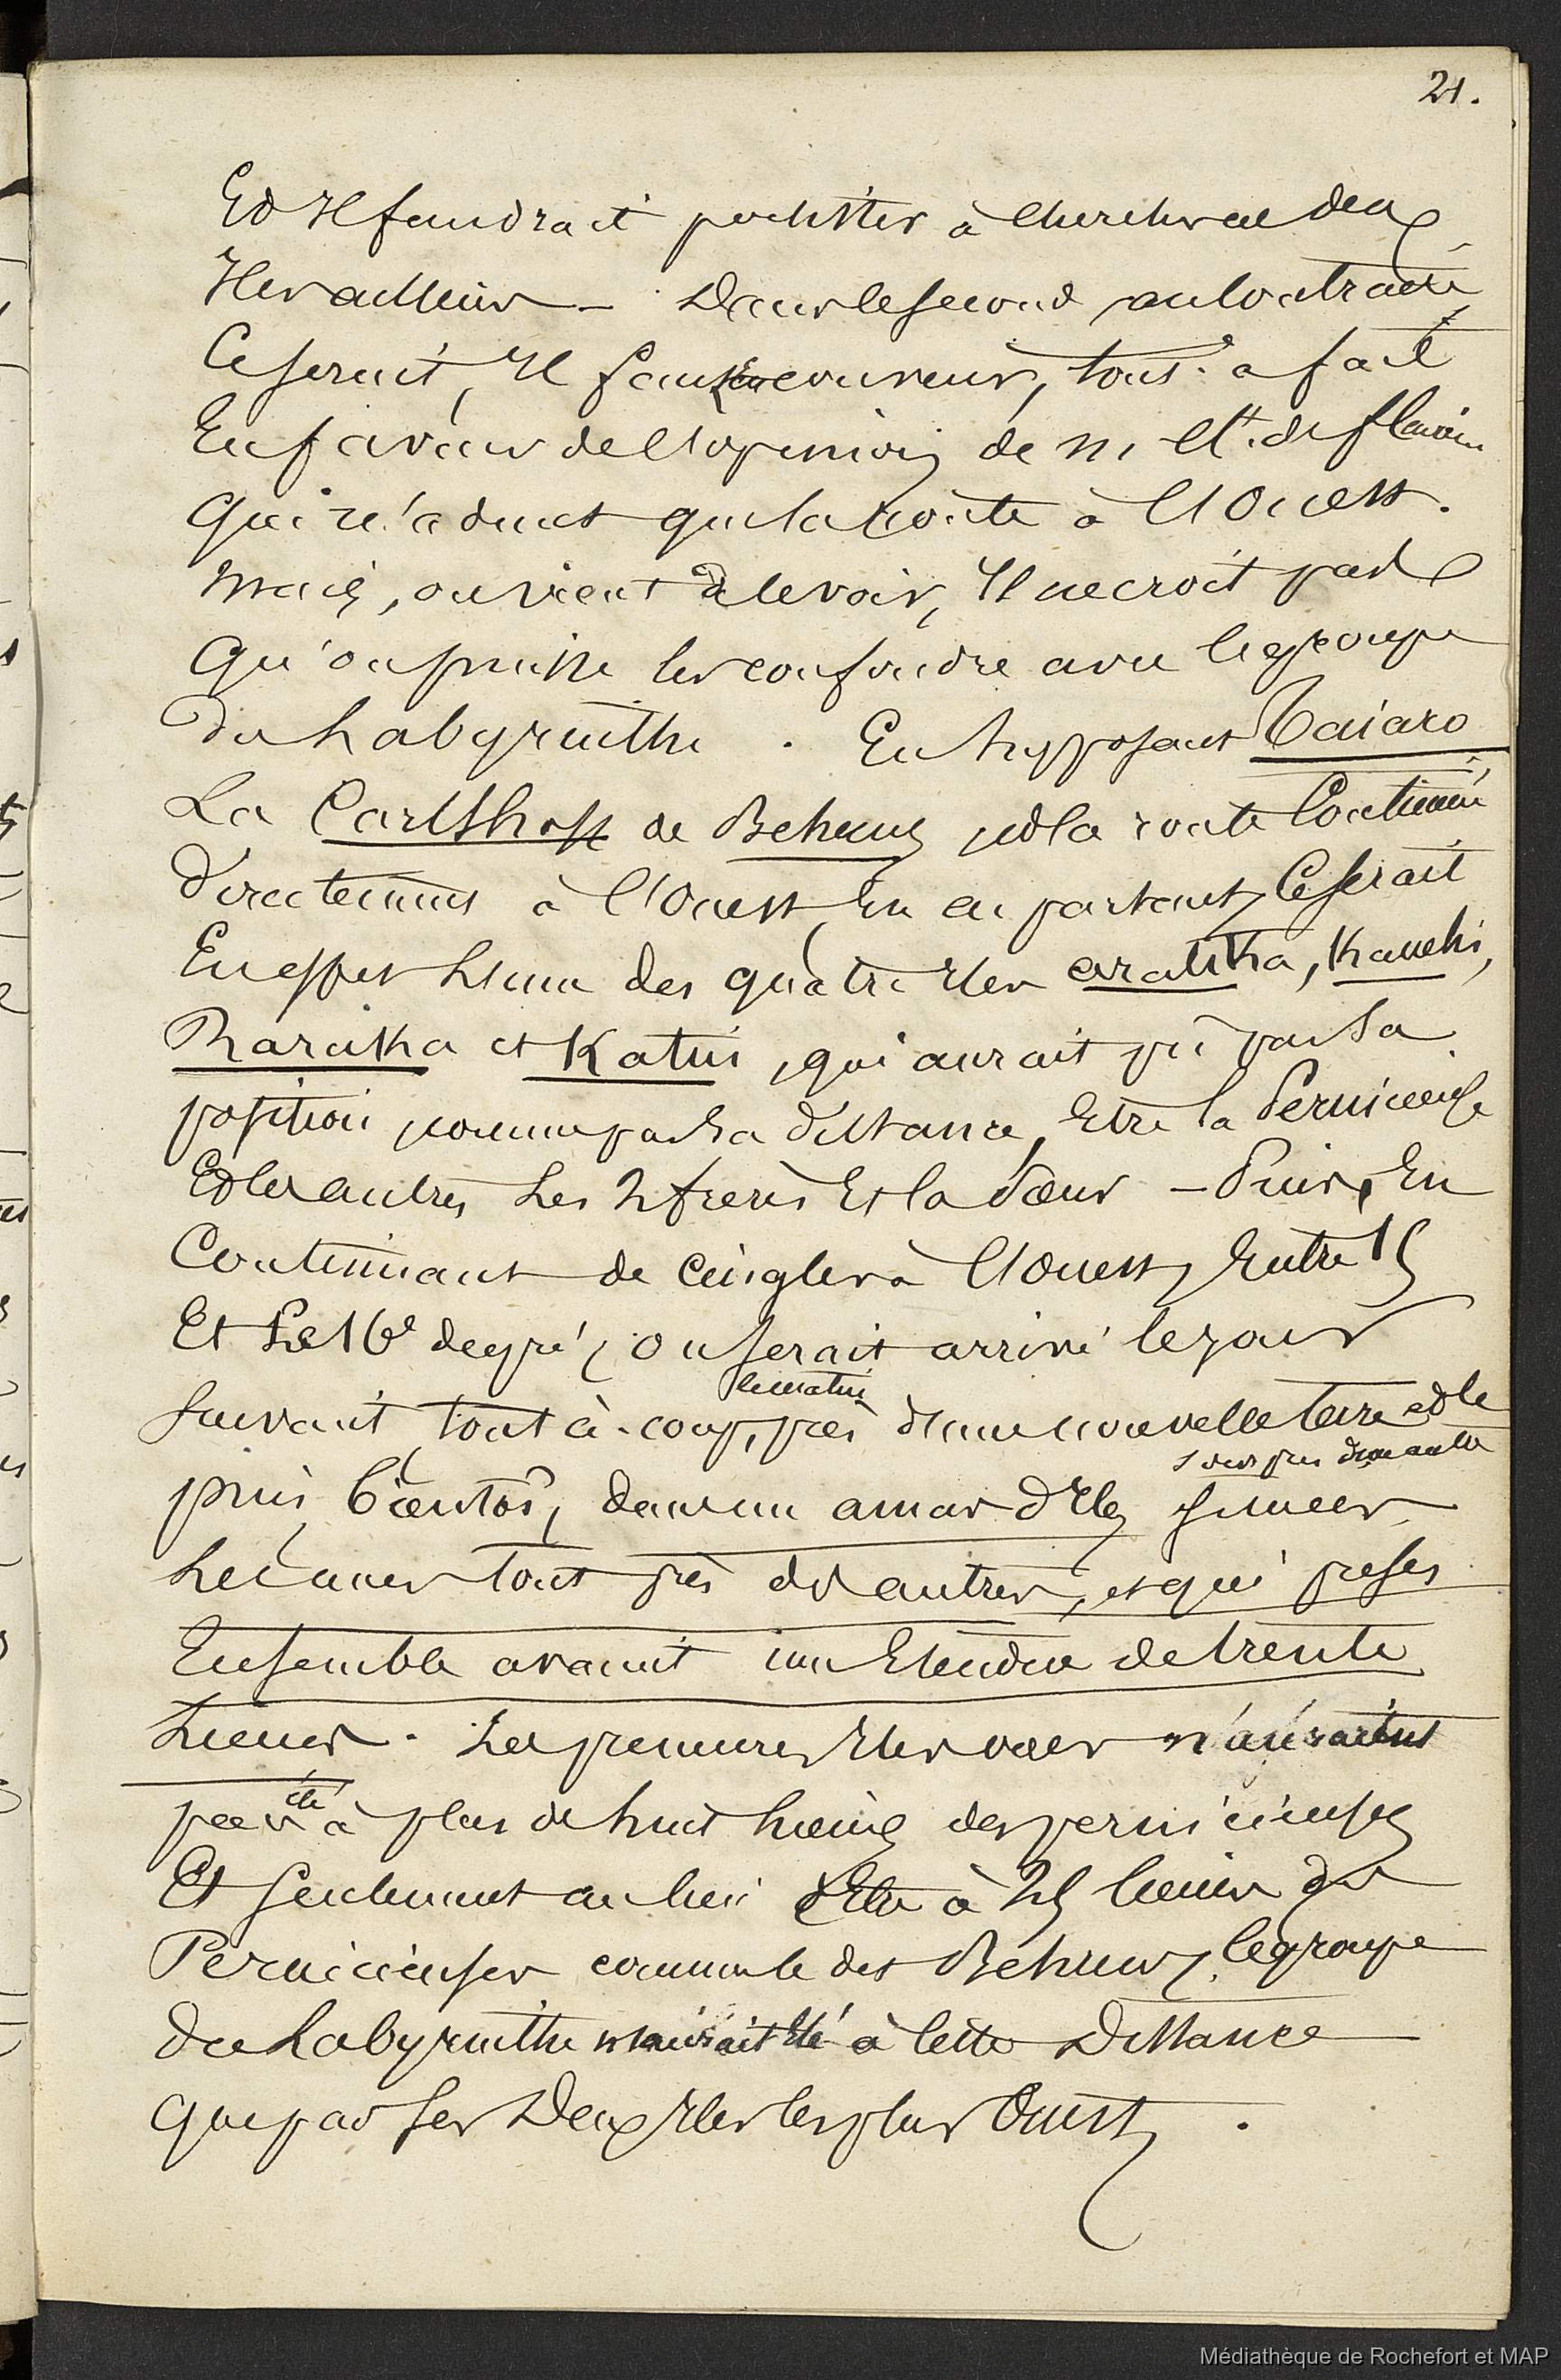 21.
Et Il faudrait persister à chercher ces deux
Iles ailleurs — Dans le second au contraire,
Ce serait, Il faut en convenir, tout à fait
En faveur de l'opinion de M. Ct. de fleurieu
Qui n'admet que la route à l'Ouest.
mais, on vient de le voir, Il ne croit pas
Qu'on puisse les confondre avec le groupe
du Labyrinthe. En supposant Taiaro
La Carlshoff de Behrens et la route Continuée
directement à l'Ouest en en partant, Ce serait
En effet L'une des quatre Iles aratika, Kauehi,
Raraka et Katiu, qui aurait pû par sa
position comme par sa distance, Etre la Pernicieuse
Et les autres Les 2 frères Et la Sœur — Puis, En
Continuant de cingler à l'Ouest, Entre 15
Et Le 16e degré, on serait arrivé le jour
suivant le matin tout à-coup, près d'une nouvelle terre et le
soir près d'une autre
puis bientôt, dans un amas d'Iles situées
Les unes tout près des autres, et qui prises
Ensemble avaient une Etendue de trente
Lieues. Les premières Iles vues n'auraient
pas été à plus de huit lieues des pernicieuses
Et seulement au lieu d'Etre à 25 lieues des
Pernicieuses comme le dit Behrens, le groupe
du Labyrinthe n'aurait Eté à cette Distance
que par ses Deux Iles les plus Ouest.
Médiathèque de Rochefort et MAP